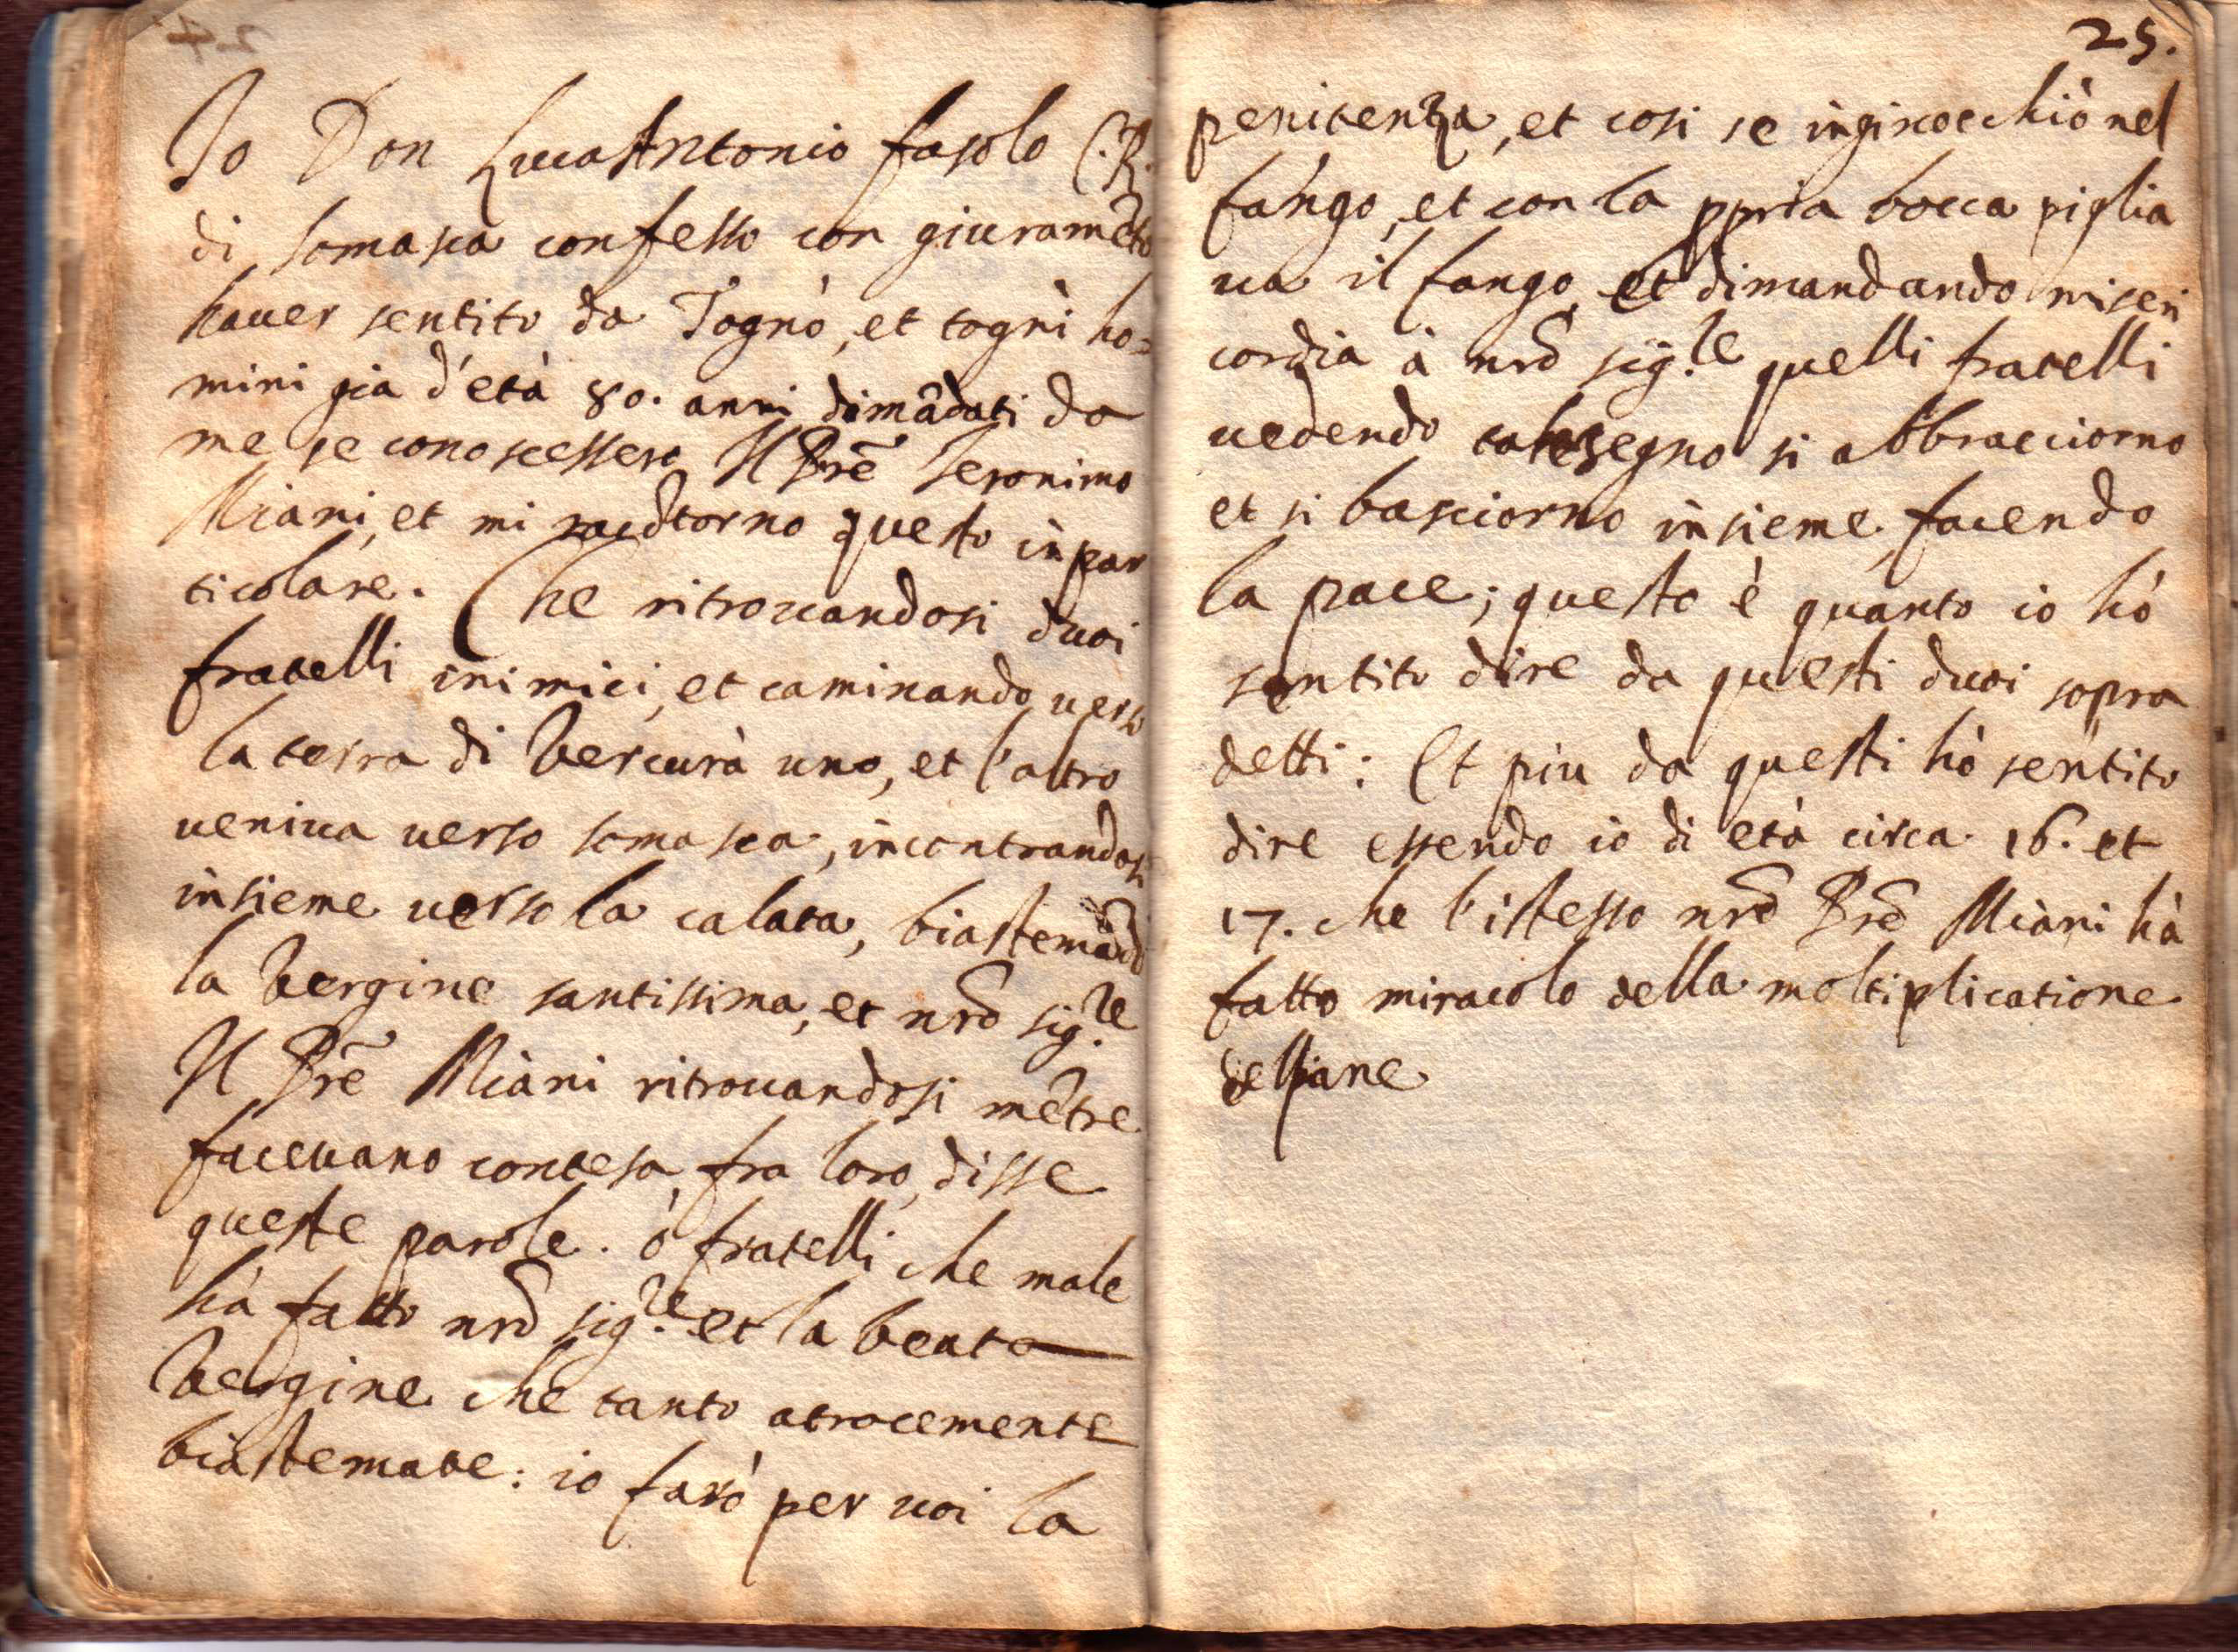 Io Don LucaAntonio fasolo C.R.
di somasca confesso con giuramẽto
hauer sentito da Tognò, et togni ho=
mini gia d'età 80. anni dimãdati da
me se conoscessero Il Prẽ Ieronimo
Miani, et mi racõtorno questo in par
ticolare. Che ritrouandosi duoi
fratelli inimici, et caminando uerso
la terra di Vercurà uno, et l'altro
ueniua uerso somasca, incontrandosi
insieme uerso la calata, biastemãdo
la Vergine santissima, et nrõ sig.re
Il Prẽ Miani ritrouandosi mẽtre
faceuano contesa fra loro, disse
queste parole. ò fratelli che male
hà fatto nrõ sig.re et la beata
Vergine che tanto atrocemente
biastemate: io farò per uoi la
25.
penitenza, et cosi se inginocchiò nel
fango, et con la ppria bocca piglia
ua il fango, et dimandando miseri
cordia à nrõ sig.re quelli fratelli
uedendo tal segno si abbracciorno
et si basciorno insieme facendo
la pace; questo è quanto io hò
sentito dire da questi duoi sopra
detti: Et piu da questi hò sentito
dire essendo io di età circa 16. et
17. che l'istesso nrõ Prẽ Miani hà
fatto miracolo della moltiplicatione
del pane